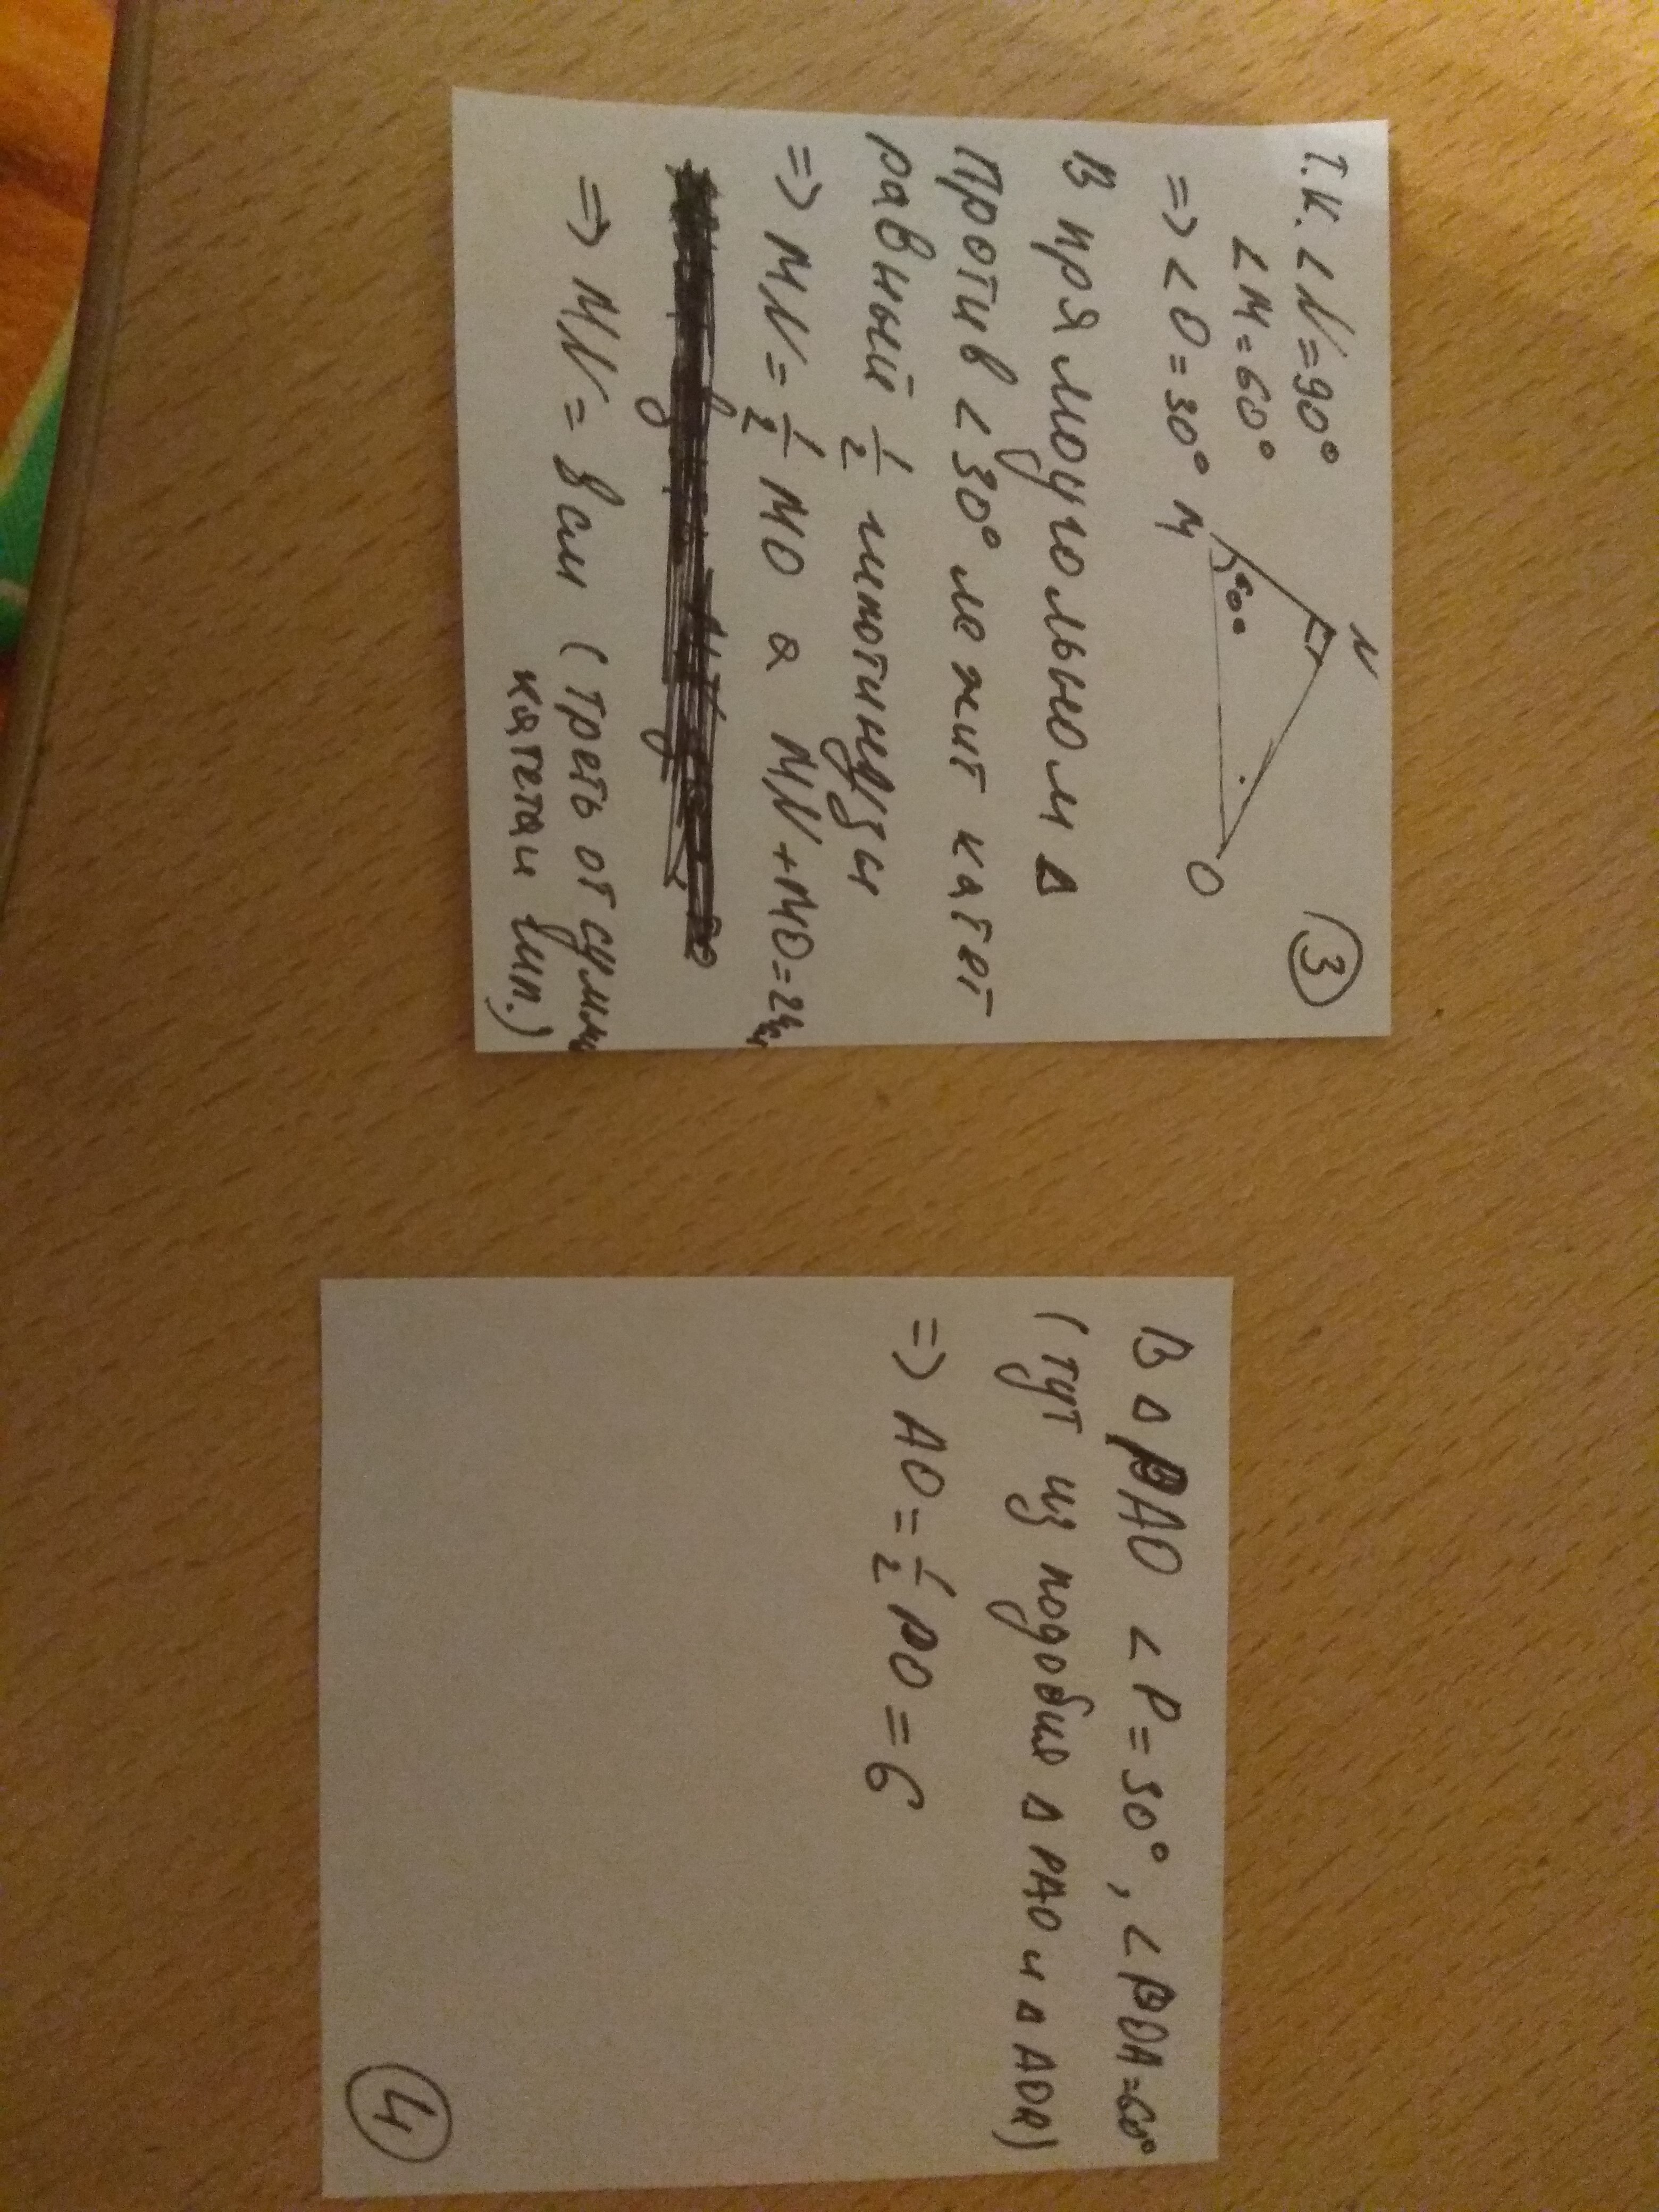 3
Т.к. ∠N=90°
∠M=60°
=> ∠O=30°
M
60°
N
O
В прямоугольном Δ
против ∠30° лежит катет
равный 1/2 гипотинузы
=> MN = 1/2 MO а MN+MO=24см
=> MN = 8 см (треть от суммы
катетаи гип.)
В Δ PAO ∠P=30°, ∠POA=60°
(тут из подобия Δ PAO и Δ AOR)
=> AO = 1/2 PO = 6
4